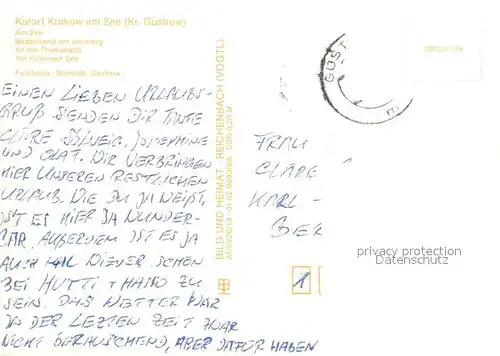 Kurort Krakow am See (Kr. Güstrow)
Am See
Badestrand am Jörnberg
An der Promenade
Am Krakower See
Fotofolks: Schmidt, Güstrow
EINEN LIEBEN URLAUBS-
GRUß SENDEN DIR TANTE
CLÄRE SOLVEIG, JOSEPHINE
UND OLAF. DIR VERBRINGEN
HIER UNSEREN RESTLICHEN
URLAUB. WIE DU JA WEIßT,
IST ES HIER JA WUNDER-
BAR. AUßERDEM IST ES JA
AUCH MAL WIEDER SCHÖN
BEI MUTTI + HANNO ZU
SEIN. DAS WETTER WAR
IN DER LETZTEN ZEIT ZWAR
NICHT BERAUSCHEND, ABER DAFÜR HABEN
BILD UND HEIMAT REICHENBACH (VOGTL)
GÜST
FRAU
CLÄRE
KARL-
BER
privacy protection
Datenschutz
1